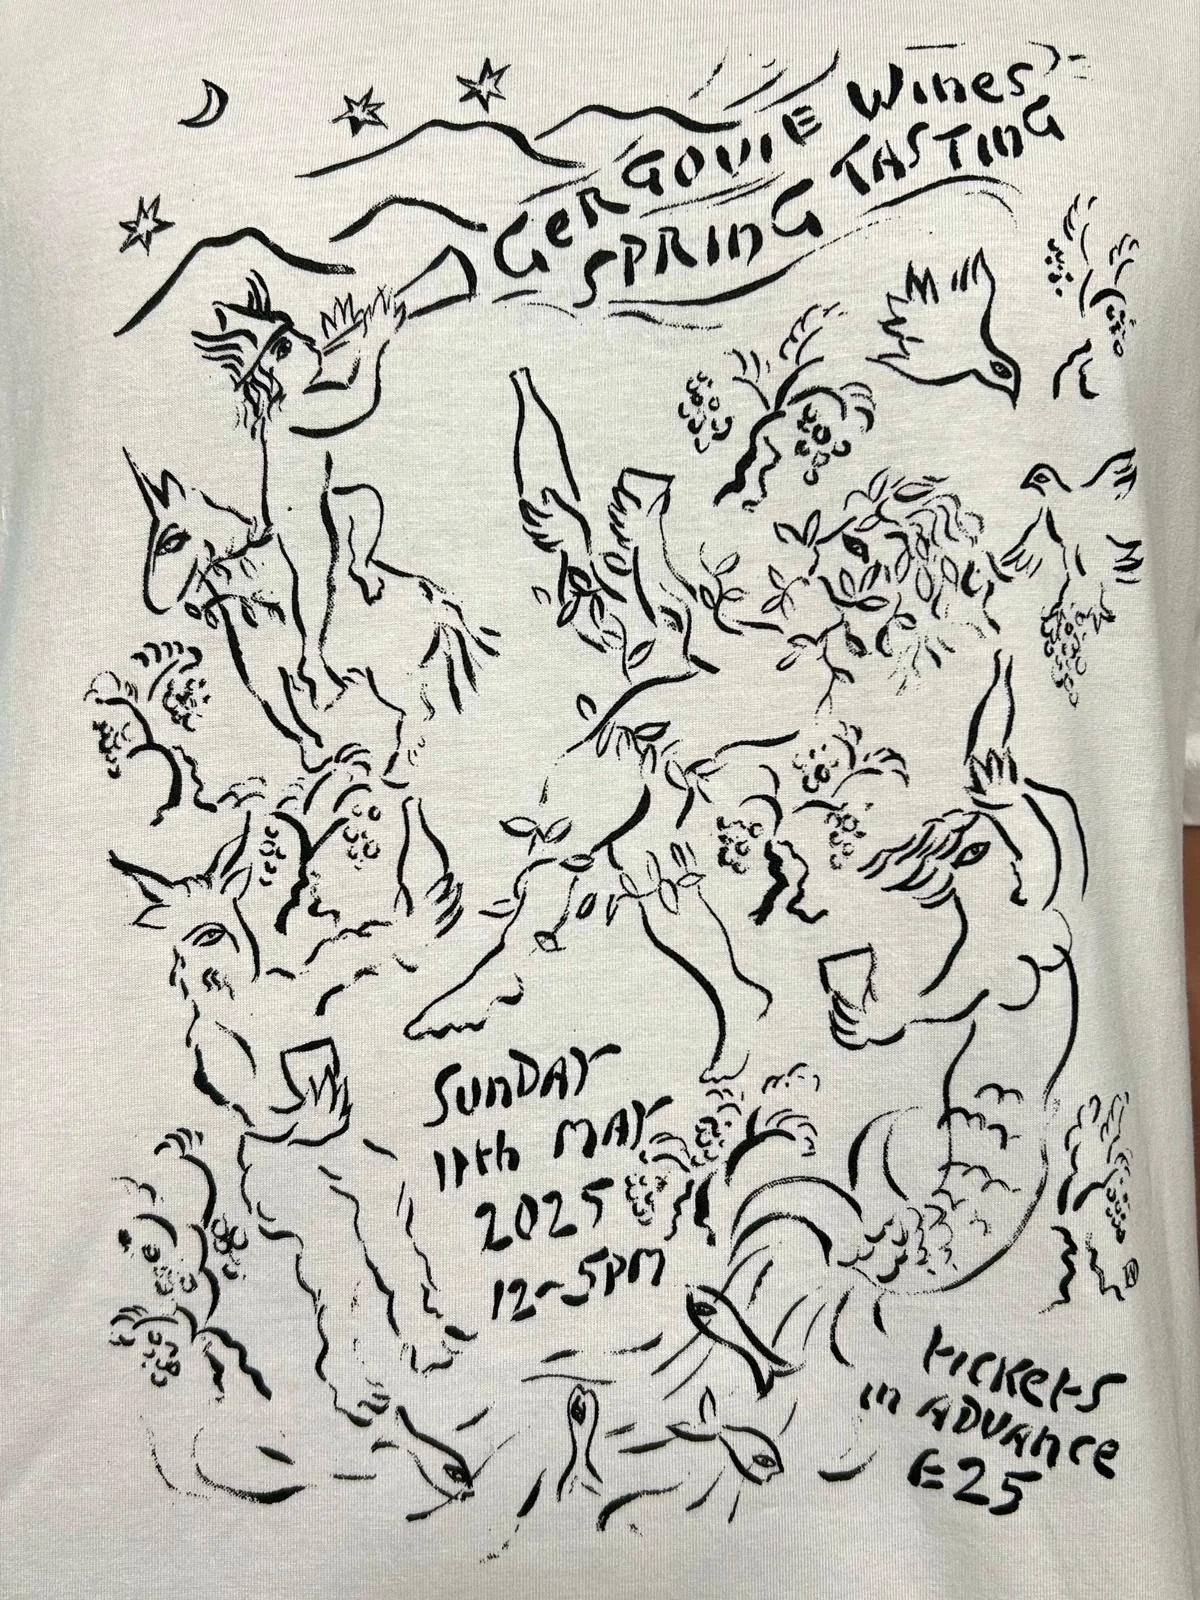 GeRGOVIE Wines
SPRING TASTING
SUNDAY
11th MAY
2025
12-5PM
tickets
in ADVANCE
£25